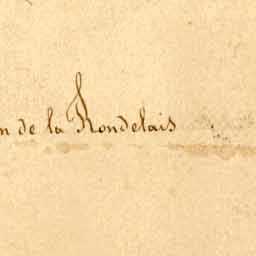 n de la Rondelais